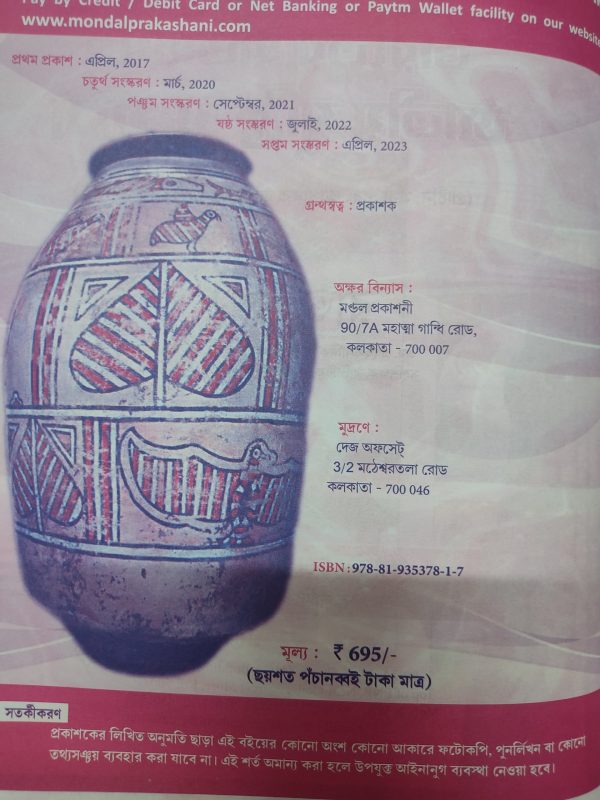 Pay by Credit / Debit Card or Net Banking or Paytm Wallet facility on our website
www.mondalprakashani.com
প্রথম প্রকাশ : এপ্রিল, 2017
চতুর্থ সংস্করণ : মার্চ, 2020
পঞ্চম সংস্করণ : সেপ্টেম্বর, 2021
ষষ্ঠ সংস্করণ : জুলাই, 2022
সপ্তম সংস্করণ : এপ্রিল, 2023
গ্রন্থস্বত্ব : প্রকাশক
অক্ষর বিন্যাস :
মণ্ডল প্রকাশনী
90/7A মহাত্মা গান্ধি রোড,
কলকাতা - 700 007
মুদ্রণে :
দেজ অফসেট্
3/2 মঠেশ্বরতলা রোড
কলকাতা - 700 046
ISBN : 978-81-935378-1-7
মূল্য : ₹ 695/-
(ছয়শত পঁচানব্বই টাকা মাত্র)
সতর্কীকরণ
প্রকাশকের লিখিত অনুমতি ছাড়া এই বইয়ের কোনো অংশ কোনো আকারে ফটোকপি, পুনর্লিখন বা কোনো
তথ্যসঞ্চয় ব্যবহার করা যাবে না। এই শর্ত অমান্য করা হলে উপযুক্ত আইনানুগ ব্যবস্থা নেওয়া হবে।